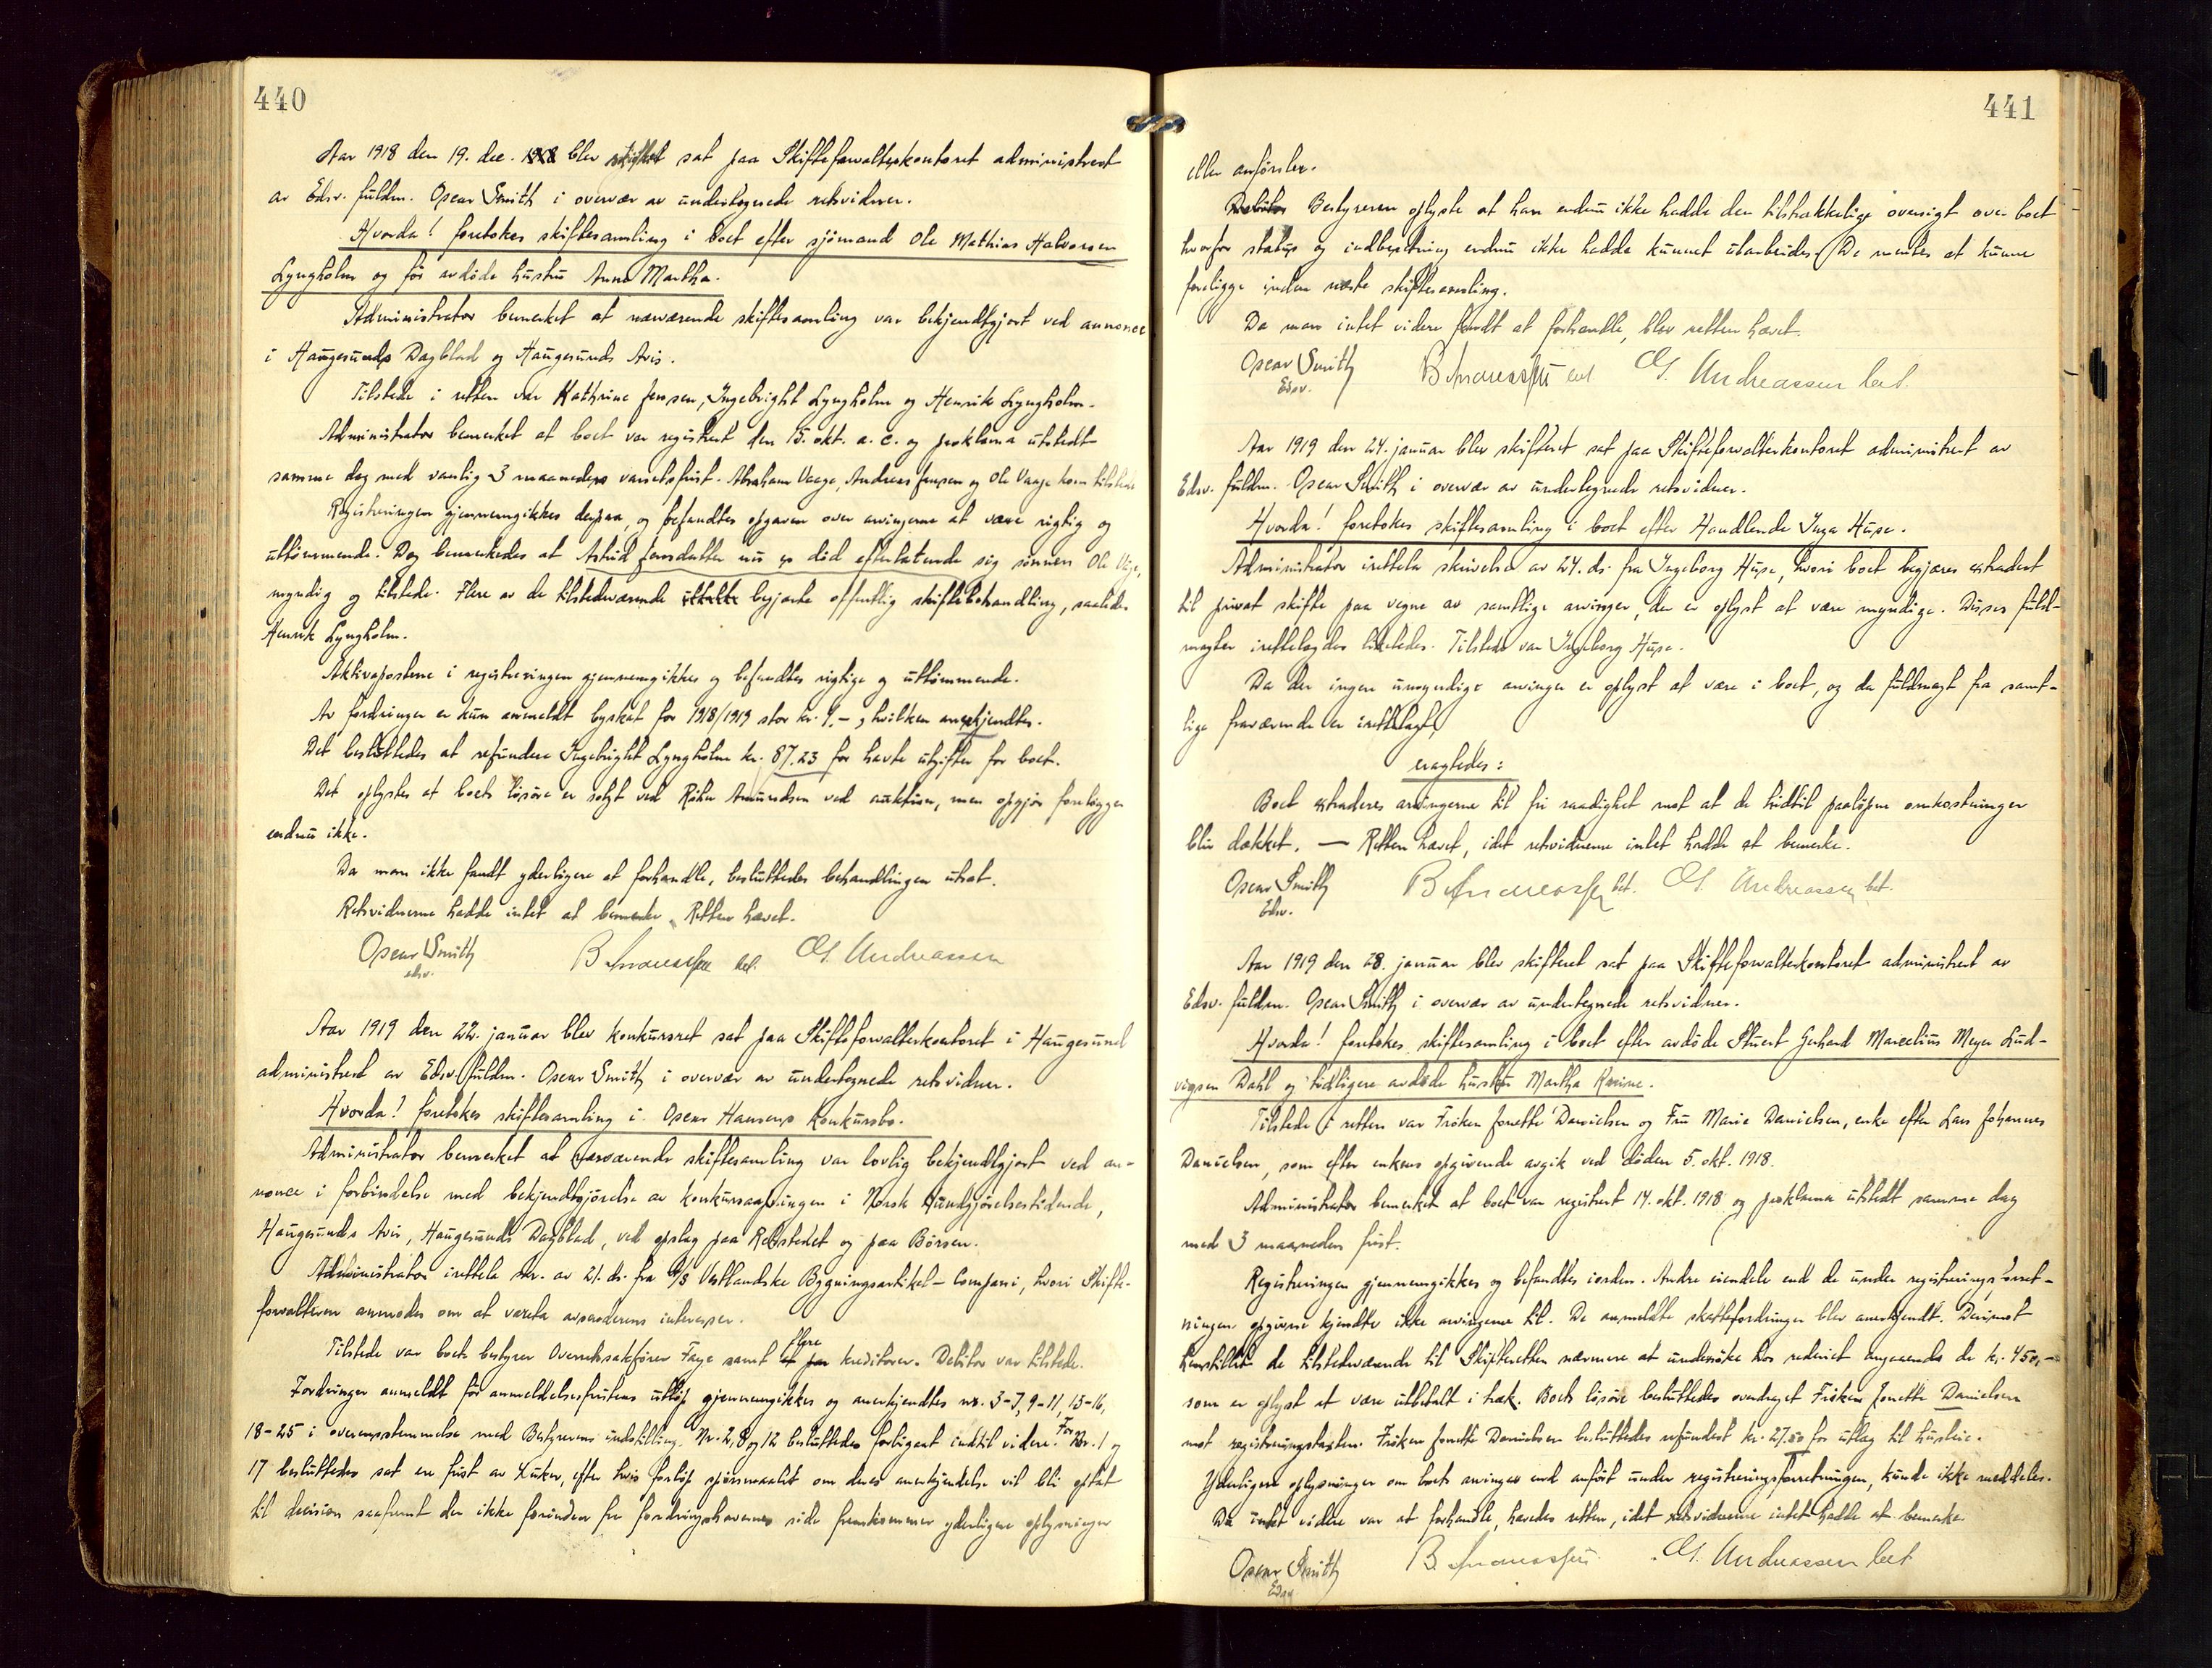 440
Aar 1918 den 19. dec. 1918 blev skifteret sat paa Skifteforvalterkontoret administrert
av Edsv. fuldm. Oscar Smith i overvær av undertegnede retsvidner.
Hvorda! foretokes skiftesamling i boet efter sjömand Ole Mathias Halvorsen
Lyngholm og för avdöde hustru Anna Martha.
Administrator bemerket at nærværende skiftesamling var bekjendtgjort ved annonce
i Haugesunds Dagblad og Haugesunds Avis.
Tilstede i retten var Kathrine Jensen, Ingebright Lyngholm og Henrik Lyngholm.
Administrator bemerket at boet var registrert den 15. okt. a. c. og proklama utstedt
samme dag med vanlig 3 maaneders varselsfrist. Abraham Vaage, Andreas Jensen og Ole Vaage kom tilstede
Registreringen gjennemgikkes derpaa, og befandtes opgaven over arvingerne at være rigtig og
uttömmende. Dog bemerkedes at Astrid Jensdatter nu er död efterlatende sig sönnen Ole
myndig og tilstede. Flere av de tilstedeværende uttalte begjærte offentlig skiftebehandling, saaledes
Henrik Lyngholm.
Aktivaposterne i registreringen gjennemgikkes og befandtes rigtige og uttömmende.
Av fordringer er kun anmeldt byskat for 1918/1919 stor kr. 9.-, hvilken anerkjendtes.
Det besluttedes at refundere Ingebright Lyngholm kr. 87.23 for havte utgifter for boet.
Det oplystes at boets lösöre er solgt ved Amundsen ved auktion, men opgjör foreligger
endnu ikke.
Da man ikke fandt yderligere at forhandle, besluttedes behandlingen utsat.
Retsvidnerne hadde intet at bemerke. Retten hævet.
Oscar Smith
edsv.
B Andreassen bet. Andreassen
Aar 1919 den 22. januar blev konkursret sat paa Skifteforvalterkontoret i Haugesund
administrert av Edsv. fuldm. Oscar Smith i overvær av undertegnede retsvidner.
Hvorda! foretokes skiftesamling i Oscar Hansens Konkursbo.
Administrator bemerket at nærværende skiftesamling var lovlig bekjendtgjort ved an-
nonce i forbindelse med bekjendtgjörelse av konkursaapningen i Norsk Kundgjörelsestidende,
Haugesunds Avis, Haugesunds Dagblad, ved opslag paa Retstedet og paa Börsen.
Administrator irettela skr. av 21. ds. fra A/S Vestlandske Bygningsartikel-Compani, hvori Skifte-
forvalteren anmodes om at vareta avsenderens interesser.
Tilstede var boets bestyrer Overretssakförer Fage samt et par flere kreditorer. Debitor var tilstede.
Fordringer anmeldt för anmeldelsesfristens utlöp gjennemgikkes og anerkjendtes nr. 3-7, 9-11, 13-16,
18-25 i overensstemmelse med Bestyrerens indstilling. Nr. 2, 8 og 12 besluttedes forbigaat indtil videre. For Nr. 1 og
17 besluttedes sat en frist av 4 uker, efter hvis forlöp spörsmaalet om deres anerkjendelse vil bli optat
til decision saafremt der ikke forinden fra fordringshavernes side fremkommer yderligere oplysninger
441
eller anförsler.
Debitor Bestyreren oplyste at han endnu ikke hadde den tilstrækkelige oversigt over boet
hvorfor status og indberetning endnu ikke hadde kunnet utarbeides. De mentes at kunne
foreligge inden næste skiftesamling.
Da man intet videre fandt at forhandle, blev retten hævet.
Oscar Smith
Edsv.
B Andreassen bet. Andreassen bet.
Aar 1919 den 24. januar blev skifteret sat paa Skifteforvalterkontoret administrert av
Edsv. fuldm. Oscar Smith i overvær av undertegnede retsvidner.
Hvorda! foretokes skiftesamling i boet efter Handlende Inga Huse.
Administrator irettela skrivelse av 24. ds. fra Ingeborg Huse, hvori boet begjæres extradert
til privat skifte paa vegne av samtlige arvinger, der er oplyst at være myndige. Disses fuld-
magter irettelagdes likeledes. Tilstede var Ingeborg Huse.
Da der ingen umyndige arvinger er oplyst at være i boet, og da fuldmagt fra samt-
lige fraværende er irettelagt,
eragtedes:
Boet extraderes arvingerne til fri raadighet mot at de hidtil paalöpne omkostninger
blir dækket. — Retten hævet, idet retsvidnerne intet hadde at bemerke.
Oscar Smith
Edsv.
B Andreassen bet. Andreassen bet.
Aar 1919 den 28. januar blev skifteret sat paa Skifteforvalterkontoret administrert av
Edsv. fuldm. Oscar Smith i overvær av undertegnede retsvidner.
Hvorda! foretokes skiftesamling i boet efter avdöde Stuert Gerhard Marcelius Meyer Lud-
vigsen Dahl og tidligere avdöde hustru Martha Karine.
Tilstede i retten var Fröken Jonette Danielsen og Fru Marie Danielsen, enke efter Lars Johannes
Danielsen, som efter enkens opgivende avgik ved döden 5. okt. 1918.
Administrator bemerket at boet var registrert 14. okt. 1918 og proklama utstedt samme dag
med 3 maaneders frist.
Registreringen gjennemgikkes og befandtes iorden. Andre eiendele end de under registreringsforret-
ningen opgivne kjendte ikke arvingerne til. De anmeldte skattefordringer blev anerkjendt. Derimot
henstillet de tilstedeværende til Skifteretten nærmere at undersöke hos rederiet angaaende de kr. 450,-
som er oplyst at være utbetalt i træk. Boets lösöre besluttedes overdraget Fröken Jonette Danielsen
mot registreringstaxten. Fröken Jonette Danielsen besluttedes refundert kr. 27.50 for utlæg til husleie.
Yderligere oplysninger om boets arvinger end anfört under registreringsforretningen, kunde ikke meddeles.
Da intet videre var at forhandle, hævedes retten, idet retsvidnerne intet hadde at bemerke.
Oscar Smith
Edsv.
B. Andreassen Andreassen bet